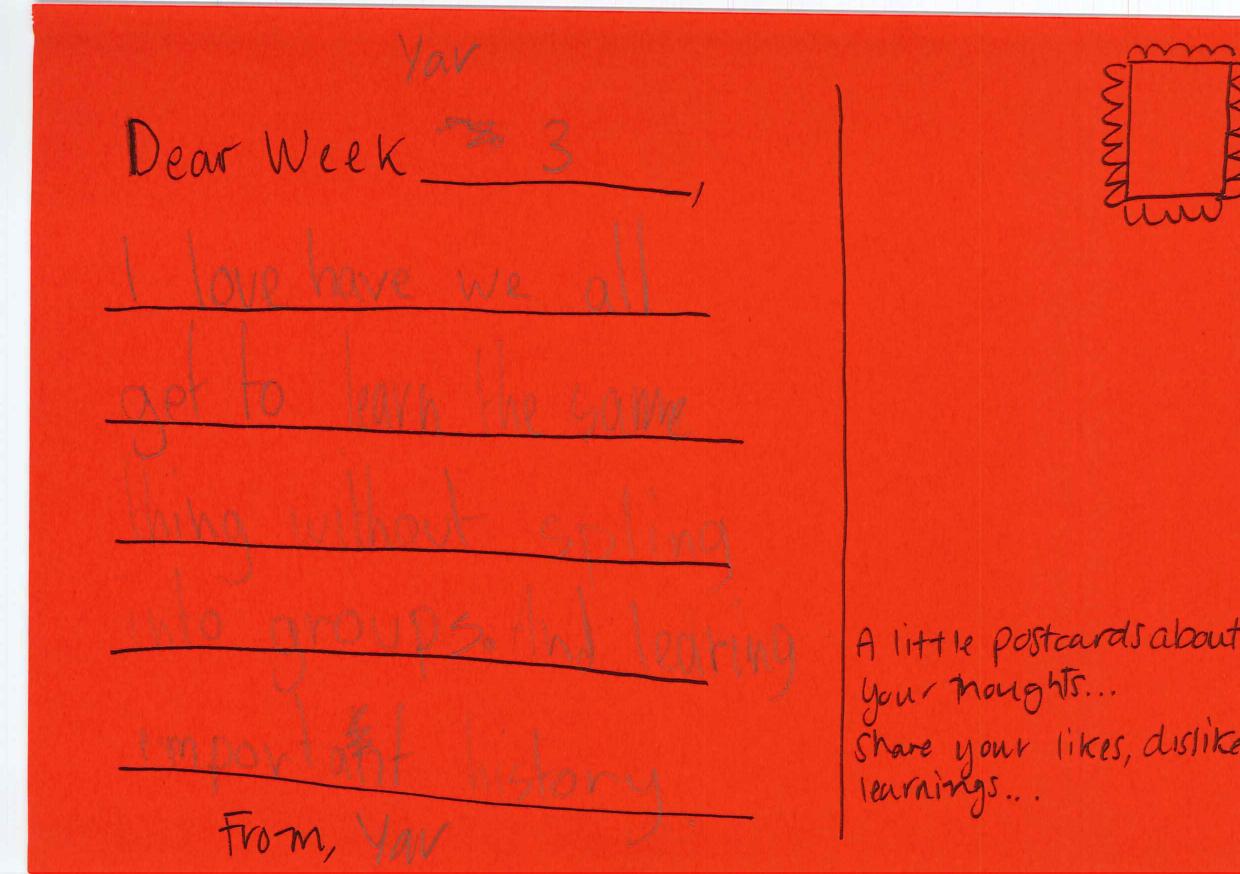 Yav
Dear Week 3,
I love have we all
get to learn the same
thing without spliing
into groups. And learing
important history.
From, Yav
A little postcards about
your thoughts...
Share your likes, dislike
learnings...